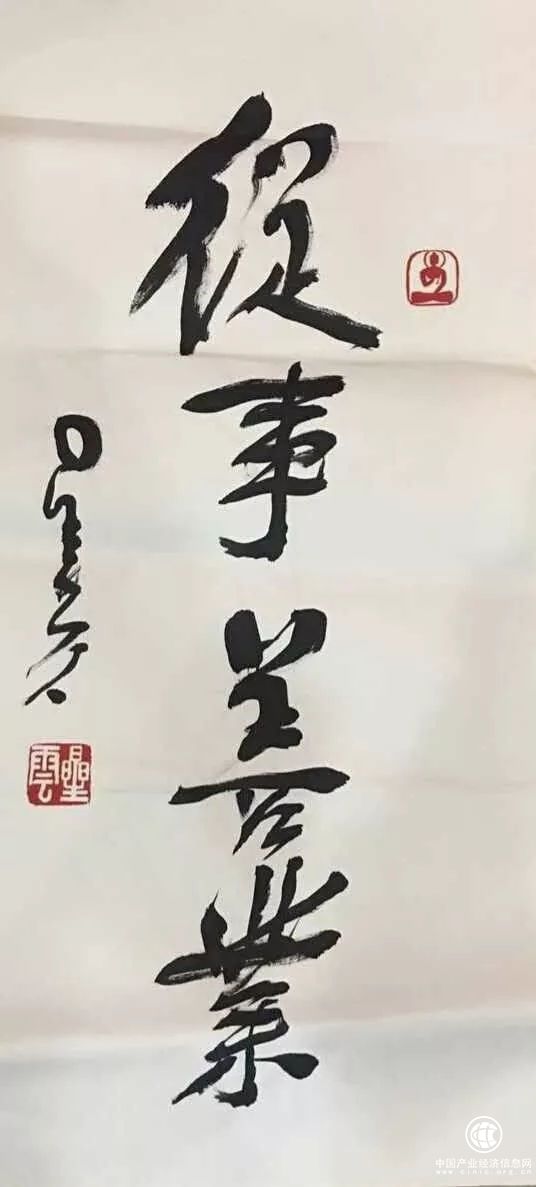 從事善業
星雲
星雲
中国产业经济信息网
www.cinic.org.cn